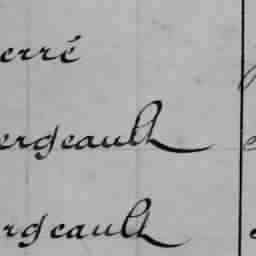 erré
ergeault
rgeault